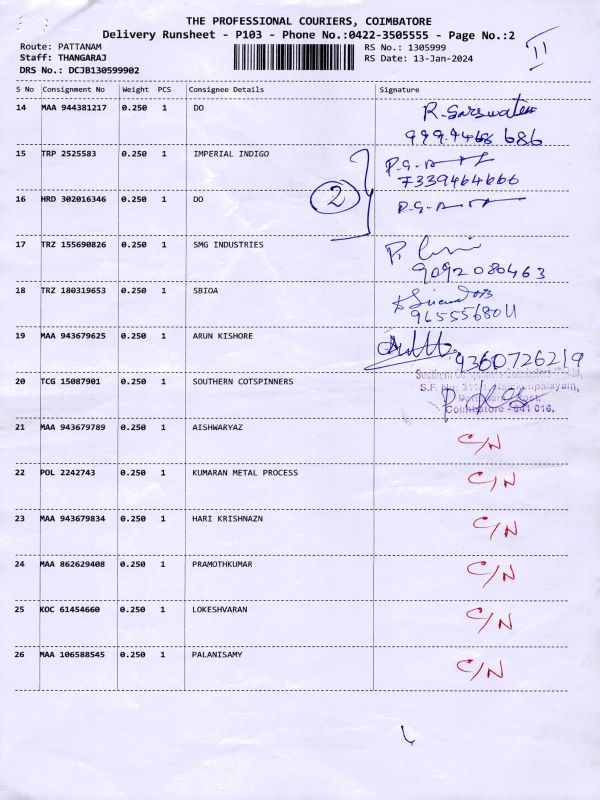 THE PROFESSIONAL COURIERS, COIMBATORE
Delivery Runsheet - P103 - Phone No.:0422-3505555 - Page No.:2
Route: PATTANAM RS No.: 1305999
Staff: THANGARAJ RS Date: 13-Jan-2024
DRS No.: DCJB130599902
II
S No Consignment No Weight PCS Consignee Details Signature
14 MAA 944381217 0.250 1 DO
15 TRP 2525583 0.250 1 IMPERIAL INDIGO
7339464666
2
16 HRD 302016346 0.250 1 DO
17 TRZ 155690826 0.250 1 SMG INDUSTRIES
9092080463
18 TRZ 180319653 0.250 1 SBIOA
9655568011
19 MAA 943679625 0.250 1 ARUN KISHORE
9360726219
20 TCG 15087901 0.250 1 SOUTHERN COTSPINNERS
Coimbatore - 641 016.
21 MAA 943679789 0.250 1 AISHWARYAZ C/N
22 POL 2242743 0.250 1 KUMARAN METAL PROCESS C/N
23 MAA 943679834 0.250 1 HARI KRISHNAZN C/N
24 MAA 862629408 0.250 1 PRAMOTHKUMAR C/N
25 KOC 61454660 0.250 1 LOKESHVARAN C/N
26 MAA 106588545 0.250 1 PALANISAMY C/N